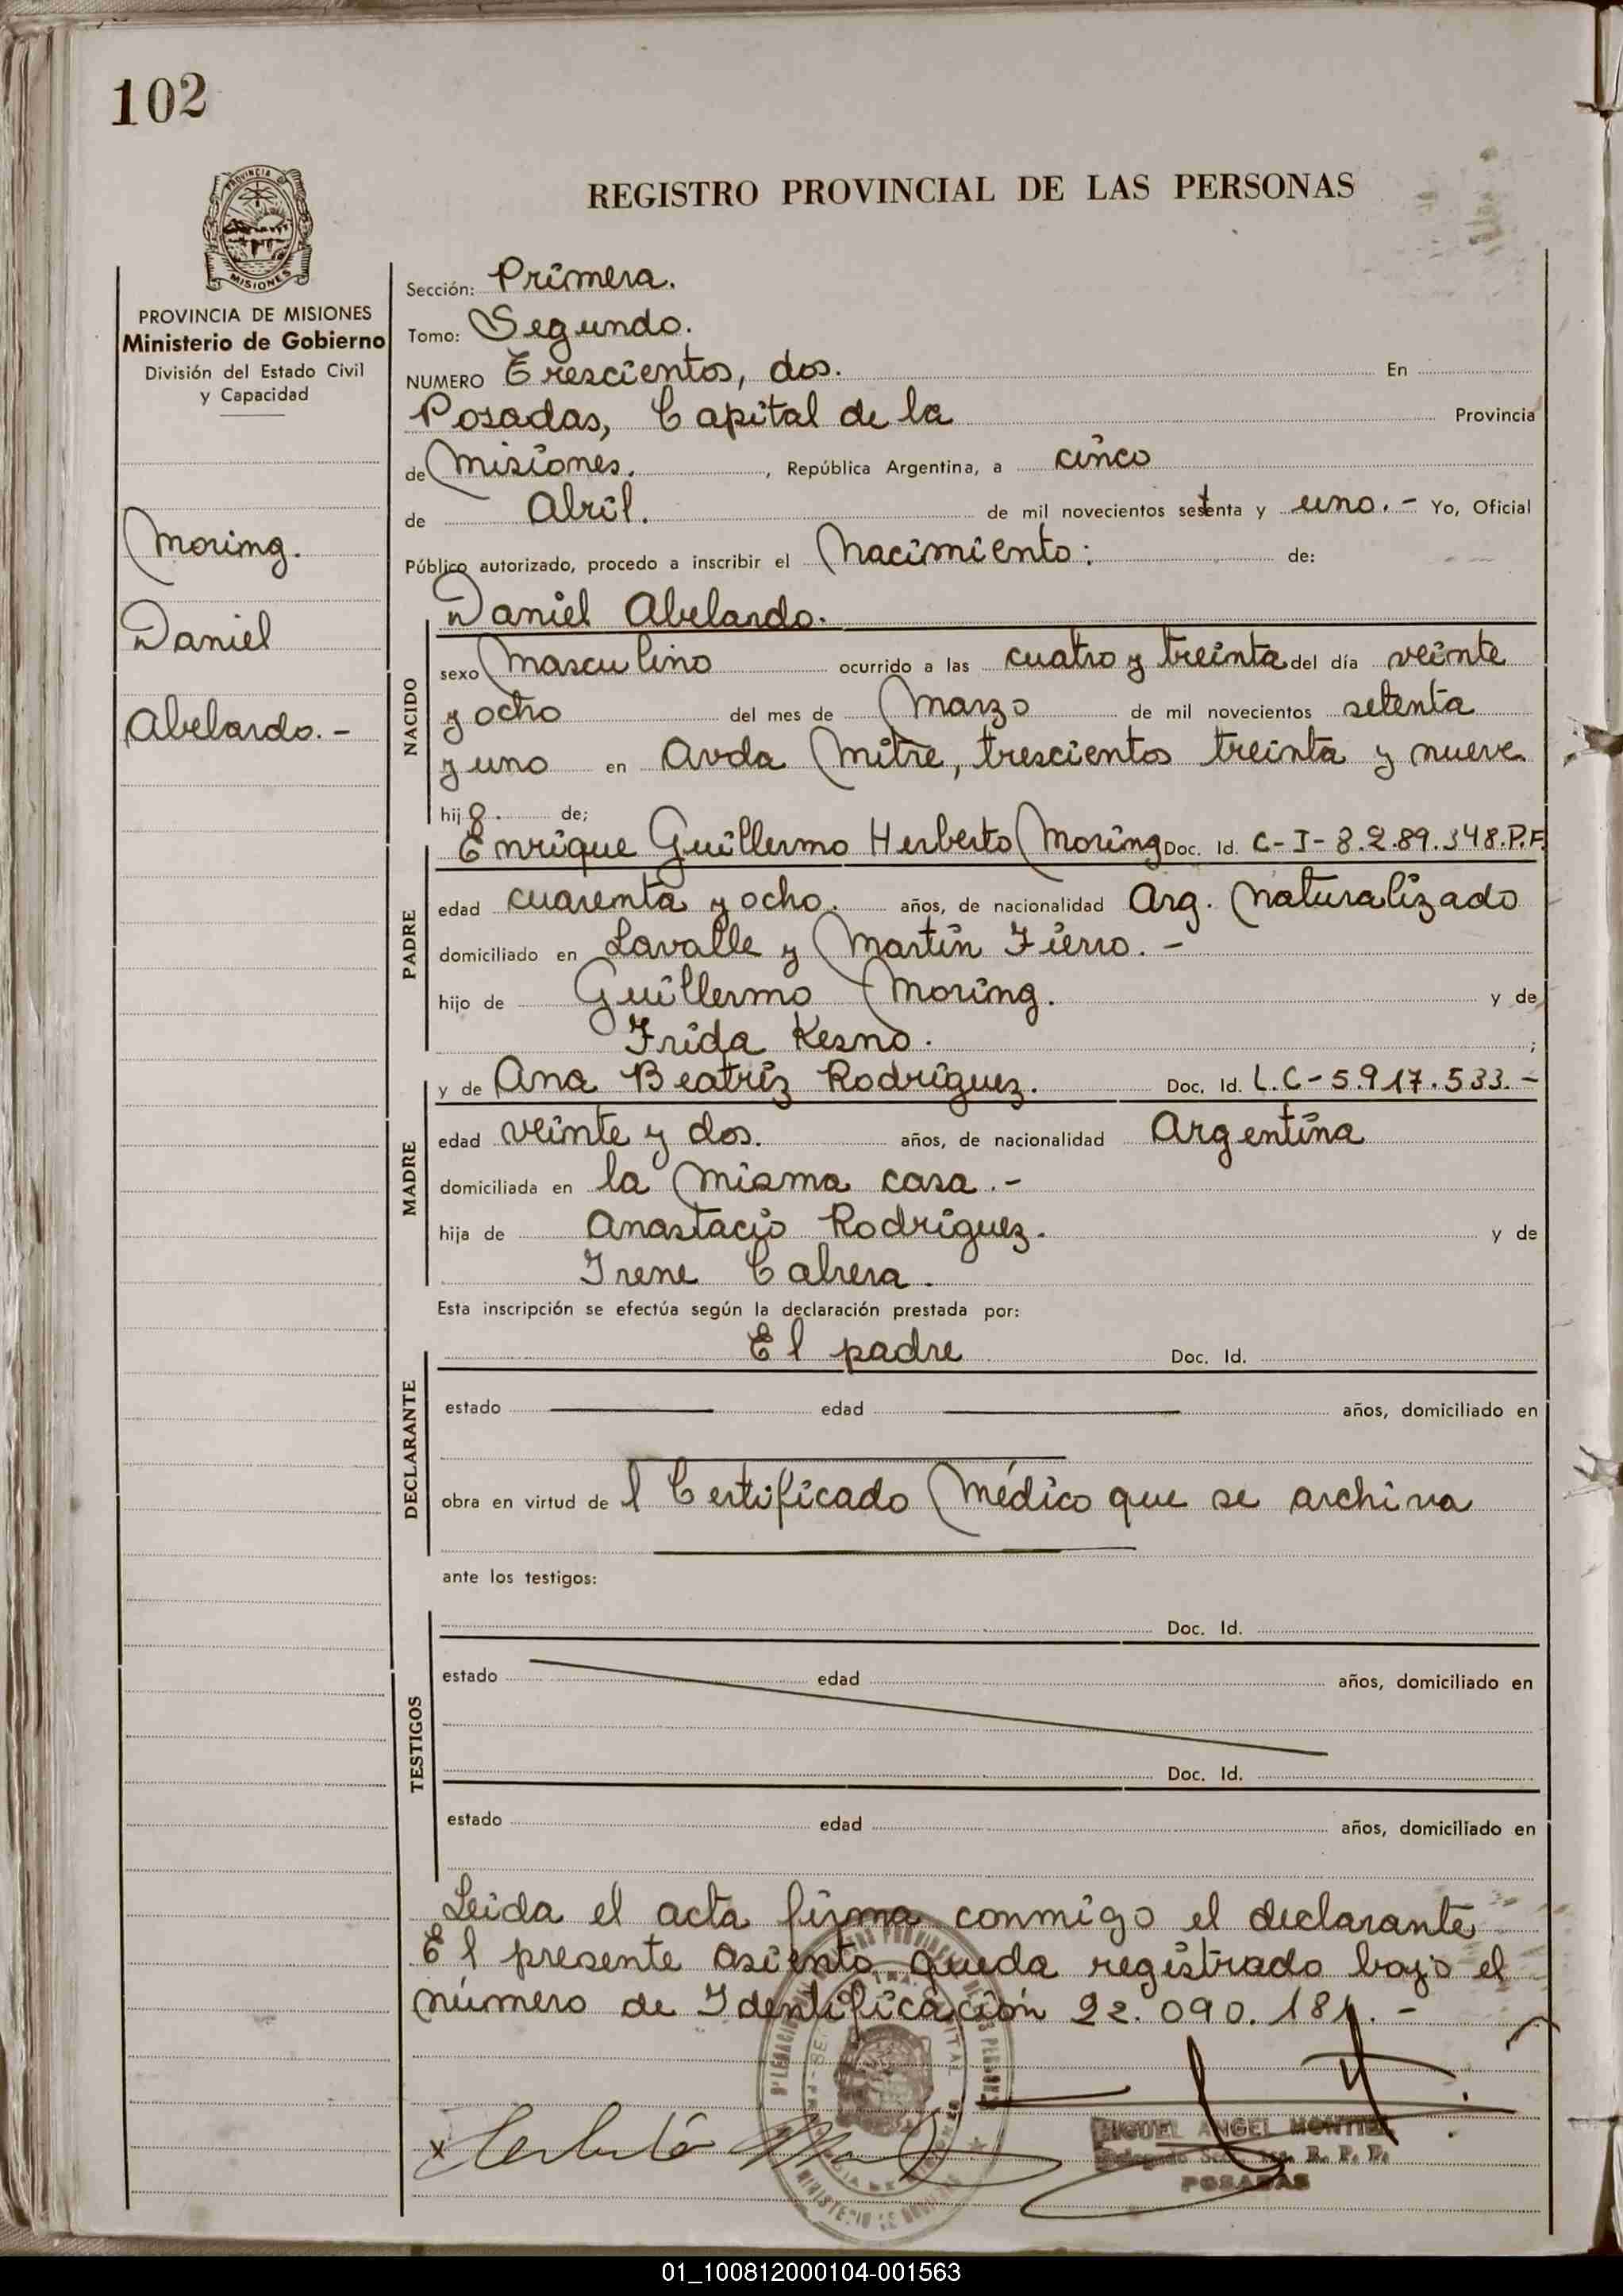 102
PROVINCIA DE
MISIONES
REGISTRO PROVINCIAL DE LAS PERSONAS
PROVINCIA DE MISIONES
Ministerio de Gobierno
División del Estado Civil
y Capacidad
Moring.
Daniel
Abelardo. -
Sección: Primera.
Tomo: Segundo.
NUMERO Trescientos, dos. En
Posadas, Capital de la Provincia
de Misiones. , República Argentina, a cinco
de Abril. de mil novecientos setenta y uno. - Yo, Oficial
Público autorizado, procedo a inscribir el Nacimiento: de:
NACIDO
Daniel Abelardo.
sexo Masculino ocurrido a las cuatro y treinta del día veinte
y ocho del mes de Marzo de mil novecientos setenta
y uno en Avda Mitre, trescientos treinta y nueve
hijo. de;
PADRE
Enrique Guillermo Herberto Moring Doc. Id. C-I-8.289.348.P.F.
edad cuarenta y ocho. años, de nacionalidad Arg. Naturalizado
domiciliado en Lavalle y Martín Fierro. -
hijo de Guillermo Moring. y de
Frida Kesno. ;
MADRE
y de Ana Beatriz Rodríguez. Doc. Id. L.C-5.917.533.-
edad veinte y dos. años, de nacionalidad Argentina
domiciliada en la misma casa. -
hija de Anastacio Rodríguez. y de
Irene Cabrera.
Esta inscripción se efectúa según la declaración prestada por:
DECLARANTE
El padre Doc. Id.
estado edad años, domiciliado en
obra en virtud de l Certificado Médico que se archiva
ante los testigos:
TESTIGOS
Doc. Id.
estado edad años, domiciliado en
Doc. Id.
estado edad años, domiciliado en
Leida el acta firma conmigo el declarante
El presente asiento queda registrado bajo el
número de Identificación 22.090.181. -
x Herberto
MIGUEL ANGEL MONTIEL
R. P. P.
POSADAS
01_100812000104-001563